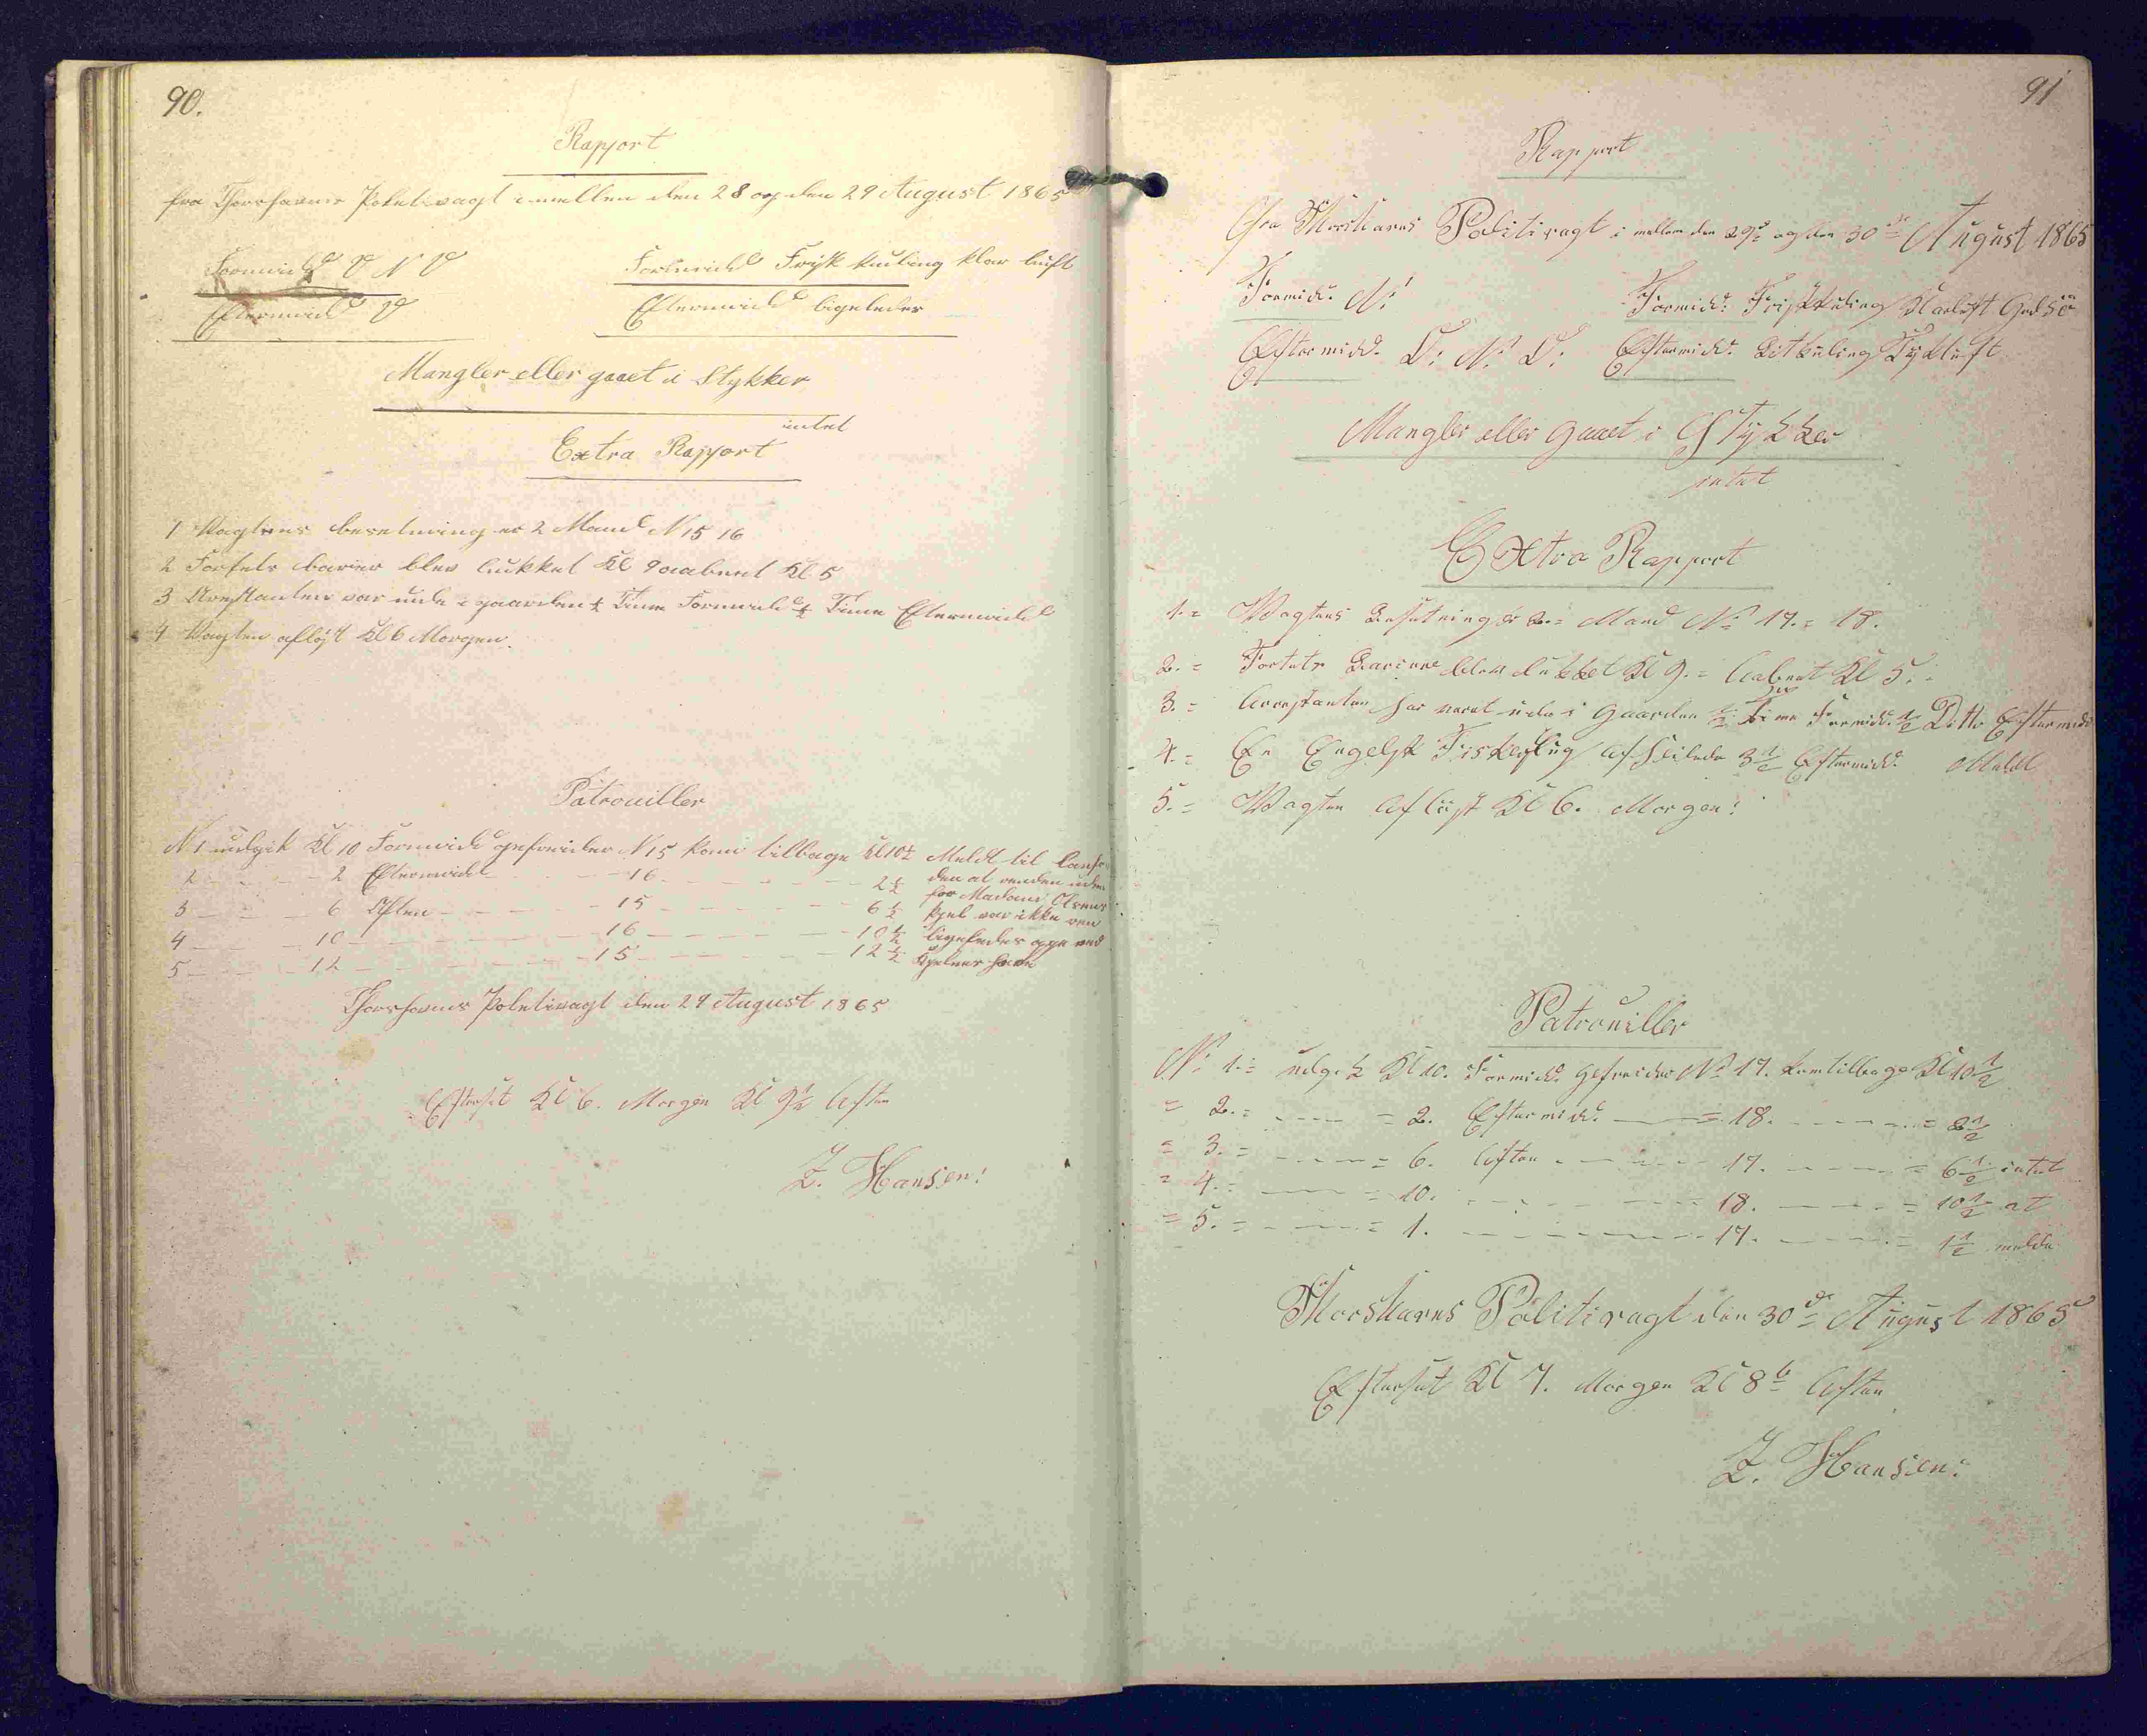 90.
Rapport
fra Thorshavns Politivagt imellem den 28 og den 29 August 1865
Formidd V N V
Formidd Frisk kuling klar luft
Eftermidd V
Eftermidd ligeledes
Mangler eller gaaet i Stykker
intet
Extra Rapport
1 Vagtens besetning er 2 Mand N 15 16
2 Fortets barier blev lukket Kl 9 aabent Kl 5
3 Arestanten var ude i gaarden ½ Time Formidd ½ Time Eftermidd
4 Vagten afløst Kl 6 Morgen.
Patrouiller
N 1 udgik Kl 10 Formidd gefreider N 15 kom tilbage Kl 10½ Meldt til
2 - - - 2 Eftermidd - - 16 - - - 2½ den at renden uden
3 - - - 6 Aften - - - 15 - - - 6½ for Madam Olsens
4 - - - 10 - - - 16 - - - 10½ ikke ren
5 - - - 12 - - - 15 - - - 12½ ligeledes oppe ved
Thorshavns Politivagt den 29 August 1865
Efterset Kl 6. Morgen Kl 9½ Aften
Z. Hansen:
91
Rapport
Fra Thorshavns Politivagt i mellem den 29de og den 30de August 1865
Formidd: N:
Formidd: Frisk Kuling Klarluft
Eftermidd. O: N: O:
Eftermidd: Litkuling Tykluft
Mangler eller gaaet i Stykker
intet
Extra Rapport
1. = Wagtens Besetning er 2 = Mand No 17. = 18.
2. = Fortets Bariere blev lukket Kl 9. = Aabent Kl 5. =
3. = Arrestanten har veret ude i Gaarden ½ Time Formidd. ½ Ditto Eftermidd
4. = En Engelsk Fiskesluq Afseilede 3½ Eftermidd. Meldt
5. = Wagten Afløst Kl 6. Morgen:
Patrouiller
No 1. = udgik Kl 10. Formidd. Gefreider No 17. kom tilbage Kl 10½
= 2. = - - - = 2. Eftermidd. - - = 18. - - - = 2½
= 3. = - - - = 6. Aften - - - 17. - - - = 6½ intet
= 4. = - - - = 10. - - - 18. - - - = 10½ at
= 5. = - - - = 1. - - - 17. - - - = 1½ melde
Thorshavns Politivagt den 30de August 1865
Efterset Kl 7. Morgen Kl 8½ Aften
Z. Hansen: